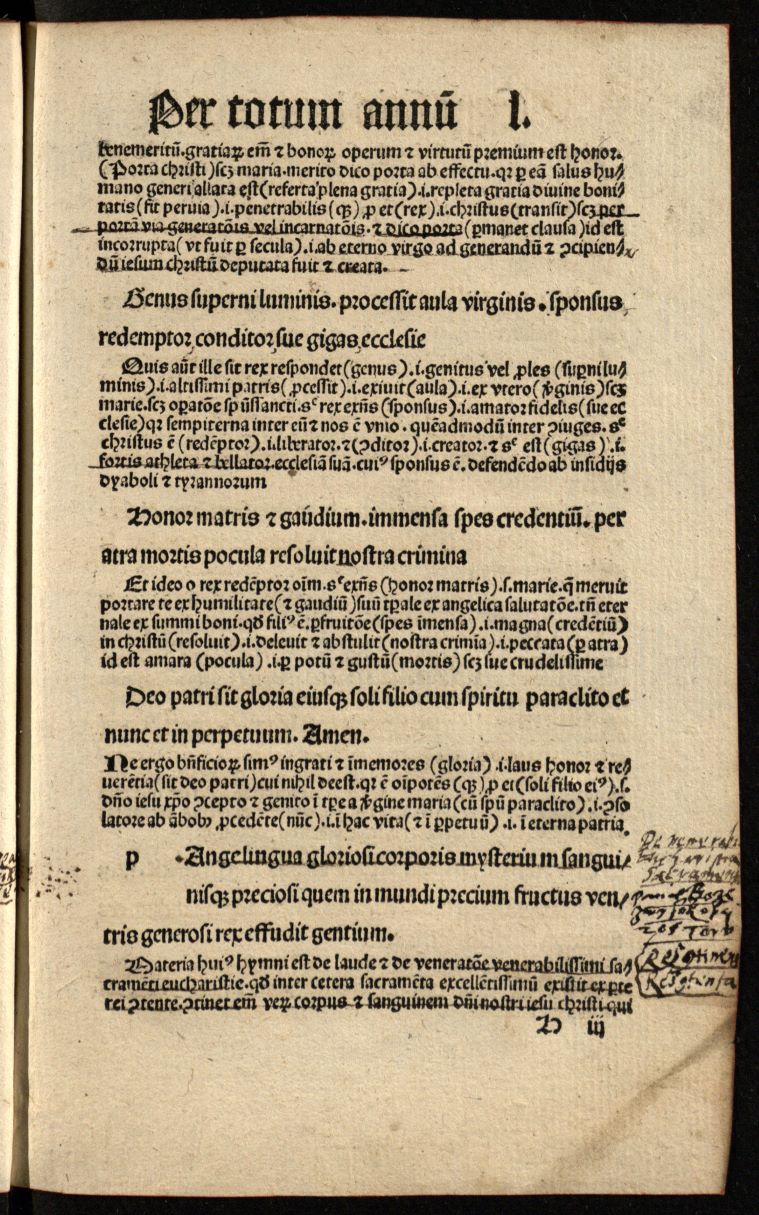 Per totum annū l.
benemeritū.gratiaꝝ em̄ ⁊ bonoꝝ operum ⁊ virtutū premium est honor.
(Porta christi)scꝫ maria.merito dico porta ab effectu.qꝛ ꝑ eā salus hu⸗
mano generi allata est(referta plena gratia).i.repleta gratia diuine boni⸗
tatis(fit peruia).i.penetrabilis(qꝫ)ꝓ et(rex).i.christus(transit)scꝫ per
portā via generatōis vel incarnatōis.⁊ dico porta(ꝑmanet clausa)id est
incorrupta(vt fuit ꝑ secula).i.ab eterno virgo ad generandū ⁊ ꝯcipien⸗
dū iesum christū deputata fuit ⁊ creata.
Genus superni luminis.processit aula virginis.sponsus
redemptor conditor sue gigas ecclesie
Quis aūt ille sit rex respondet(genus).i.genitus vel ꝓles (suꝑni lu⸗
minis).i.altissimi patris(ꝓcessit).i.exiuit(aula).i.ex vtero(v̓ginis)scꝫ
marie.scꝫ oꝑatōe spūssancti.sᶜ rex exn̄s(sponsus).i.amator fidelis(sue ec
clesie)qꝛ sempiterna inter eū ⁊ nos ē vnio.quēadmodū inter ꝯiuges.sᶜ
christus ē (redēptor).i.liberator.⁊(ꝯditor).i.creator.⁊ sᶜ est(gigas).i.
fortis athleta ⁊ bellator.ecclesiā suā.cuiꝰ sponsus ē.defendēdo ab insidijs
dyaboli ⁊ tyrannorum
Honor matris ⁊ gaudium.immensa spes credentiū.per
atra mortis pocula resoluit nostra crimina
Et ideo o rex redēptor oīm.sᶜ exn̄s(honor matris).s.marie.q̄ meruit
portare te ex humilitate(⁊ gaudiū)suū tꝑale ex angelica salutatōe.tn̄ eter
nale ex summi boni.qd̄ filiꝰ ē.ꝑfruitōe(spes īmensa).i.magna(credētiū)
in christū(resoluit).i.deleuit ⁊ abstulit(nostra crimīa).i.peccata(ꝑ atra)
id est amara (pocula).i.ꝑ potū ⁊ gustū(mortis)scꝫ sue crudelissime
Deo patri sit gloria eiusqꝫ soli filio cum spiritu paraclito et
nunc et in perpetuum. Amen.
Ne ergo bn̄ficioꝝ simꝰ ingrati ⁊ īmemores (gloria).i.laus honor ⁊ re⸗
uerētia(sit deo patri)cui nihil deest.qꝛ ē oīpotēs(qꝫ)ꝓ et(soli filio eiꝰ).s.
dn̄o iesu xp̄o ꝯcepto ⁊ genito ī tꝑe a v̓gine maria(cū spū paraclito).i.ꝯso
latore ab ābobꝫ ꝓcedēte(nūc).i.ī hac vita(⁊ ī ꝑpetuū).i.ī eterna patria
p .Angelingua gloriosi corporis mysterium sangui⸗
nisqꝫ preciosi quem in mundi precium fructus ven⸗
tris generosi rex effudit gentium.
Materia huiꝰ hymni est de laude ⁊ de veneratōe venerabilissimi sa⸗
cramēti eucharistie.qd̄ inter cetera sacramēta excellētissimū existit ex ꝑte
rei ꝯtente.ꝯtinet em̄ veꝝ corpus ⁊ sanguinem dn̄i nostri iesu christi qui
H iij